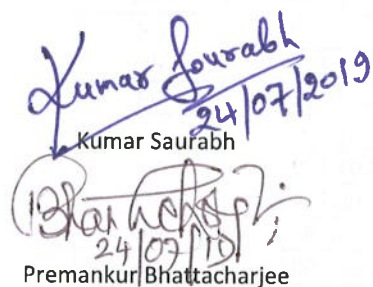 Kumar Sourabh
24/07/2019
Kumar Saurabh
Bhattacharjee
24/07/19
Premankur Bhattacharjee